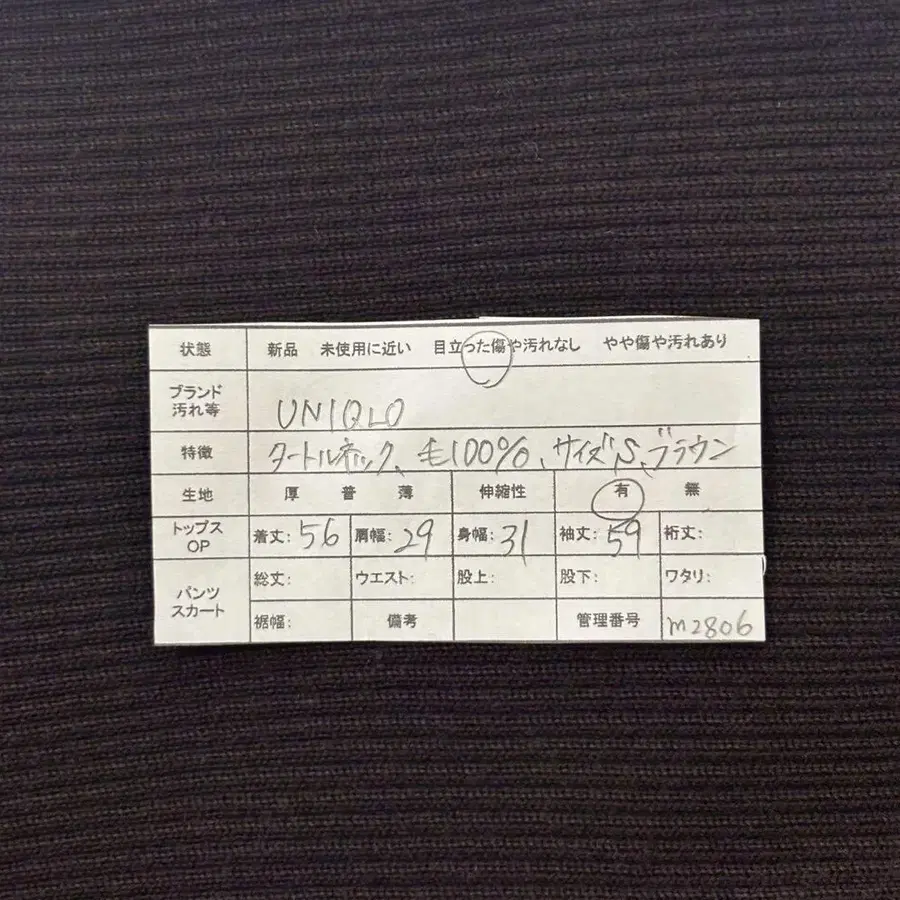 状態 新品 未使用に近い 目立った傷や汚れなし やや傷や汚れあり
ブランド
汚れ等 UNIQLO
特徴 タートルネック、毛100%、サイズS、ブラウン
生地 厚 普 薄 伸縮性 有 無
トップス
OP 着丈:56 肩幅:29 身幅:31 袖丈:59 裄丈:
パンツ
スカート 総丈: ウエスト: 股上: 股下: ワタリ:
裾幅: 備考 管理番号 m2806